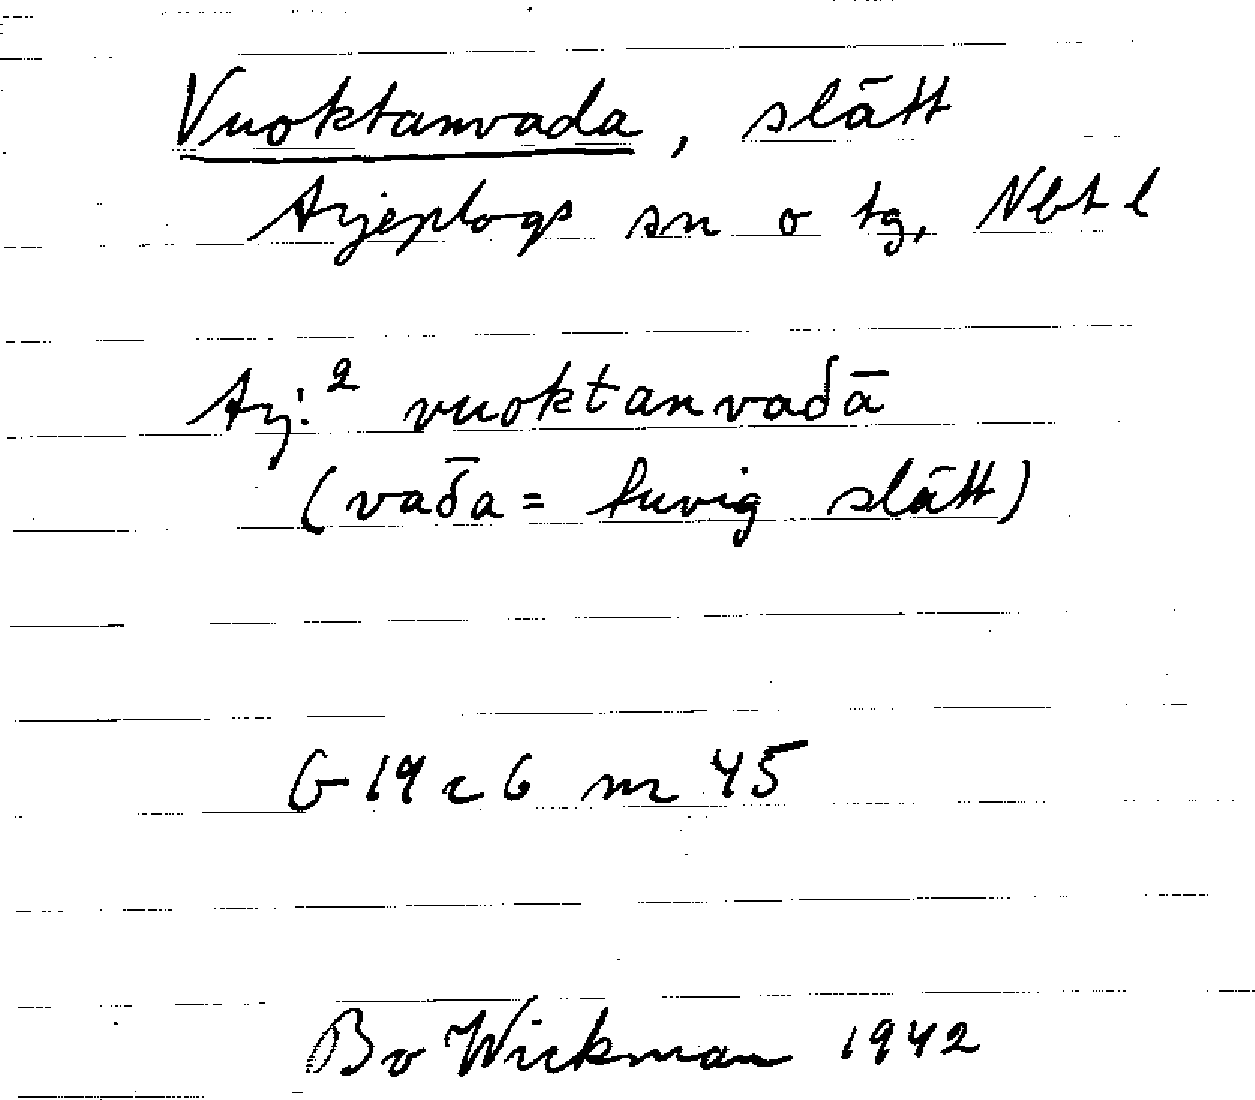 Vuoktanvada, slätt
Arjeplogs sn o tg, Nbt l
Arj.² vuoktanvaδā
(vaδ̄a = tuvig slätt)
G 19 c 6 nr 45
Bo Wickman 1942